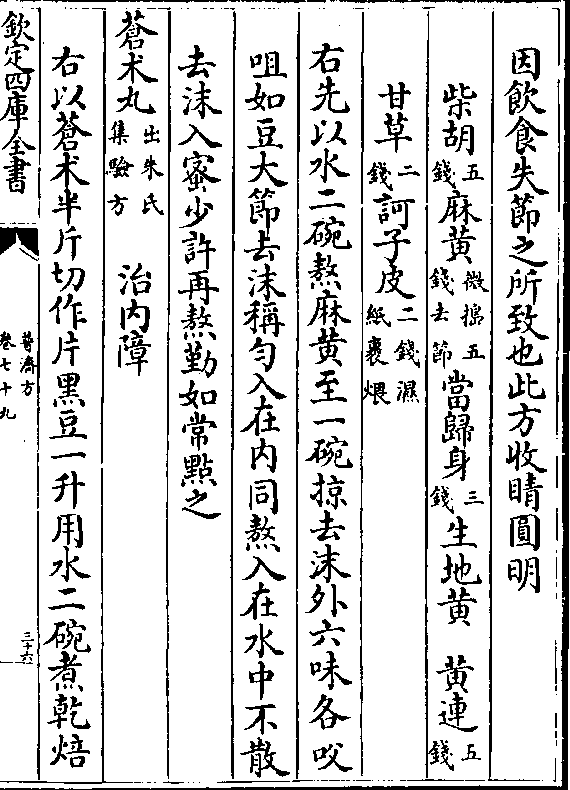 因飲食失節之所致也此方收睛圓明
柴胡五錢麻黄微搗五錢去節當歸身三錢生地黄　黄連五錢
甘草二錢訶子皮二錢濕紙裹煨
右先以水二碗熬麻黄至一碗掠去沫外六味各㕮
咀如豆大節去沫稱勻入在内同熬入在水中不散
去沫入蜜少許再熬勤如常點之
蒼术丸出朱氏集驗方　治内障
右以蒼术半斤切作片黒豆一升用水二碗煮乾焙
欽定四庫全書
普濟方
卷七十九
三十六